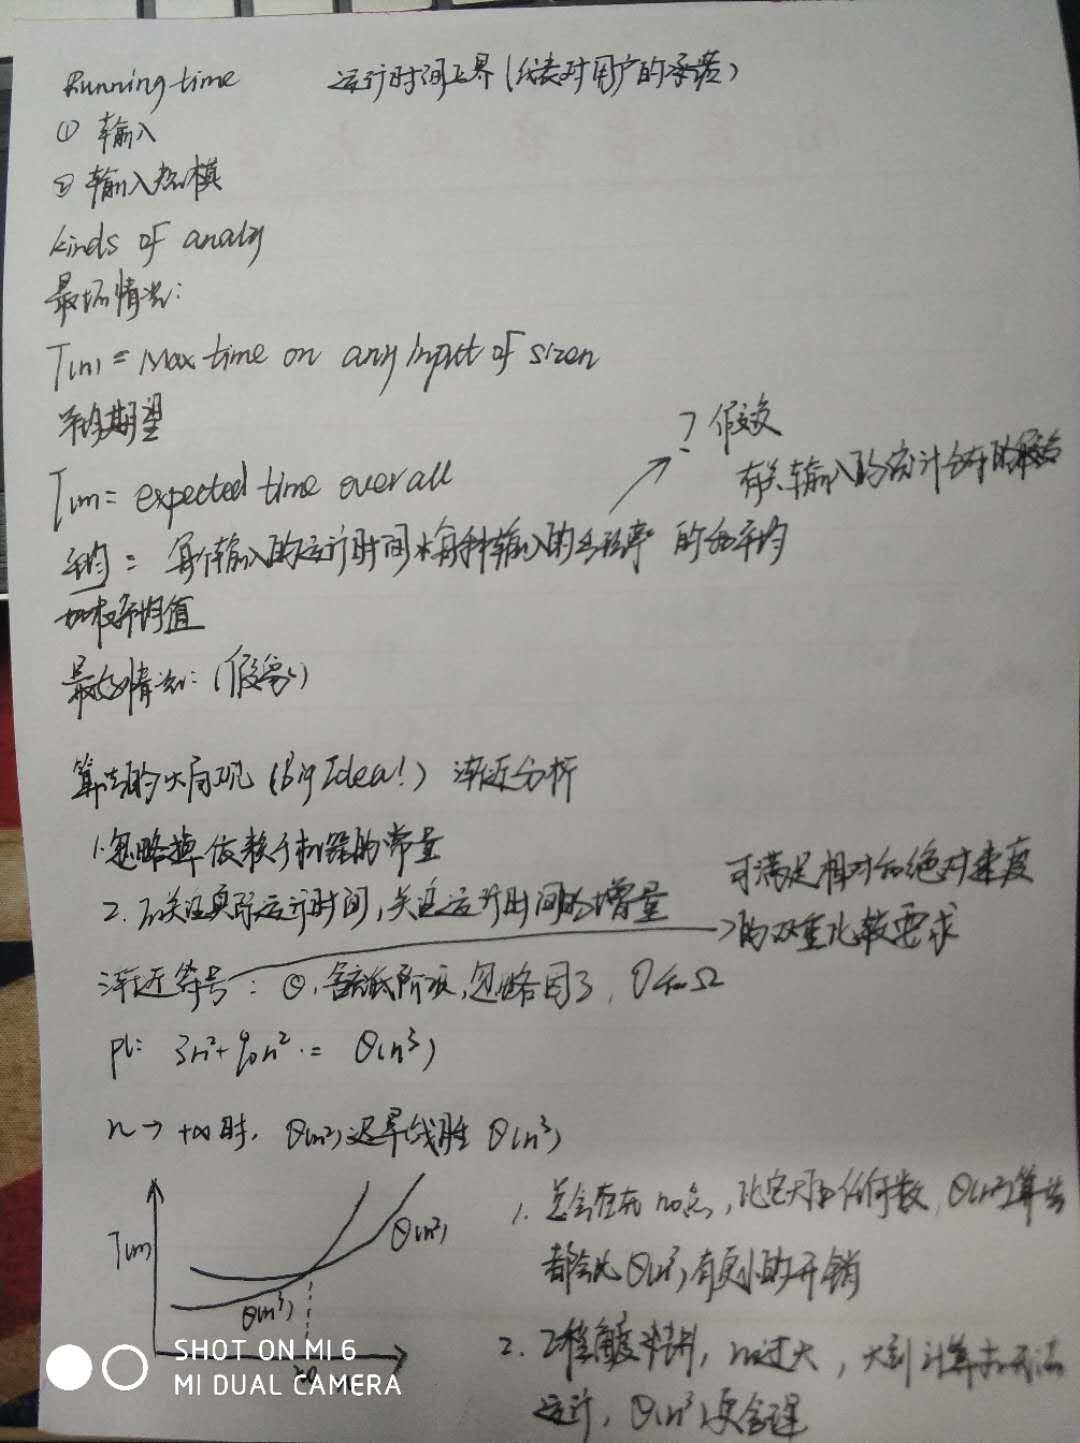 Running time 运行时间上界(代表对用户的承诺)
① 输入
② 输入规模
kinds of analy
最坏情况:
T(n) = Max time on any input of size n
平均期望
T(n) = expected time over all
? 假设
有关输入的统计分布的
平均 = 每个输入的运行时间*每种输入的概率 的 平均
加权平均值
最好情况: (假象)
算法的大局观 (Big Idea!) 渐近分析
1. 忽略掉依赖于机器的常量
2. 不关注实际运行时间,关注运行时间的增量
可满足相对和绝对速度
的双重比较要求
渐近符号: Θ, 舍弃低阶项,忽略因子, O和Ω
n → +∞时, Θ(n²)迟早战胜 Θ(n³)
T(n)
Θ(n²)
Θ(n³)
n0
1. 总会存在 n0点, 比它大的任何数, Θ(n²)算法
都会比 Θ(n³)有更小的开销
2. 工程角度来讲, n0过大, 大到计算机无法
运行, Θ(n³)更合理
SHOT ON MI 6
MI DUAL CAMERA